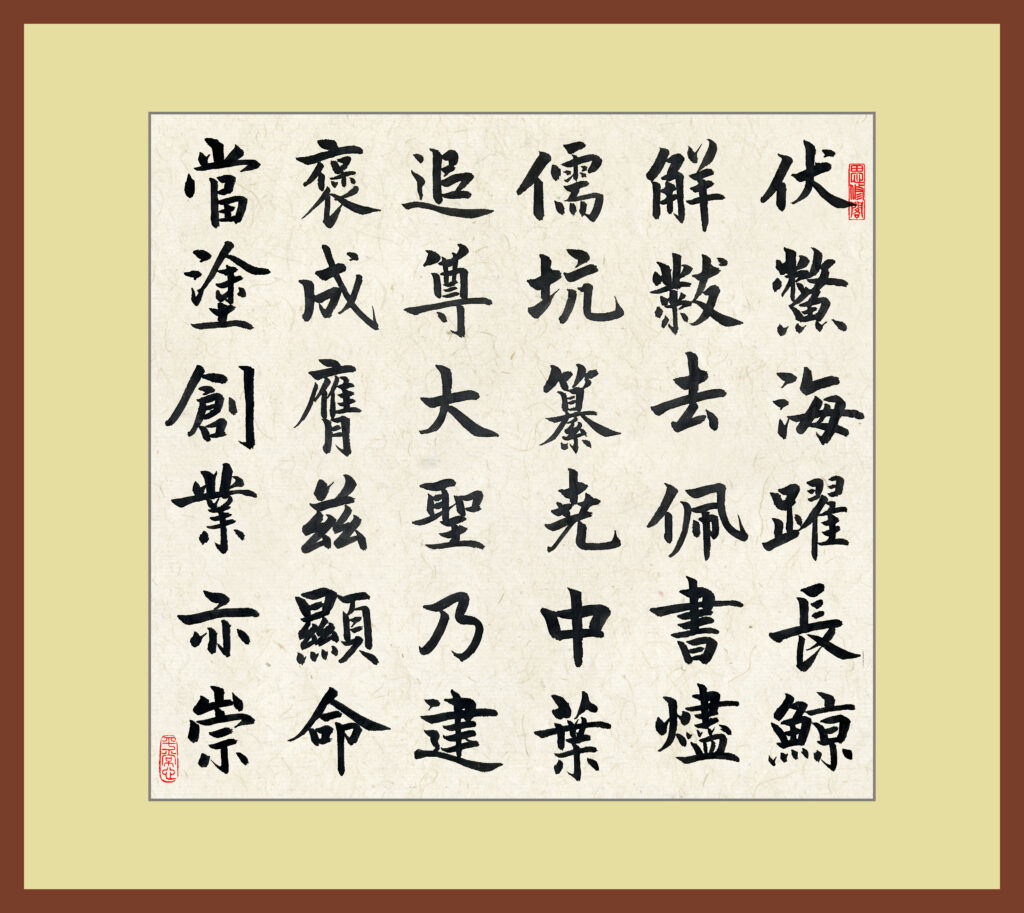 伏鱉海躍長鯨
解黻去佩書燼
儒坑纂堯中葉
追尊大聖乃建
褒成膺茲顯命
當塗創業亦崇
平常心